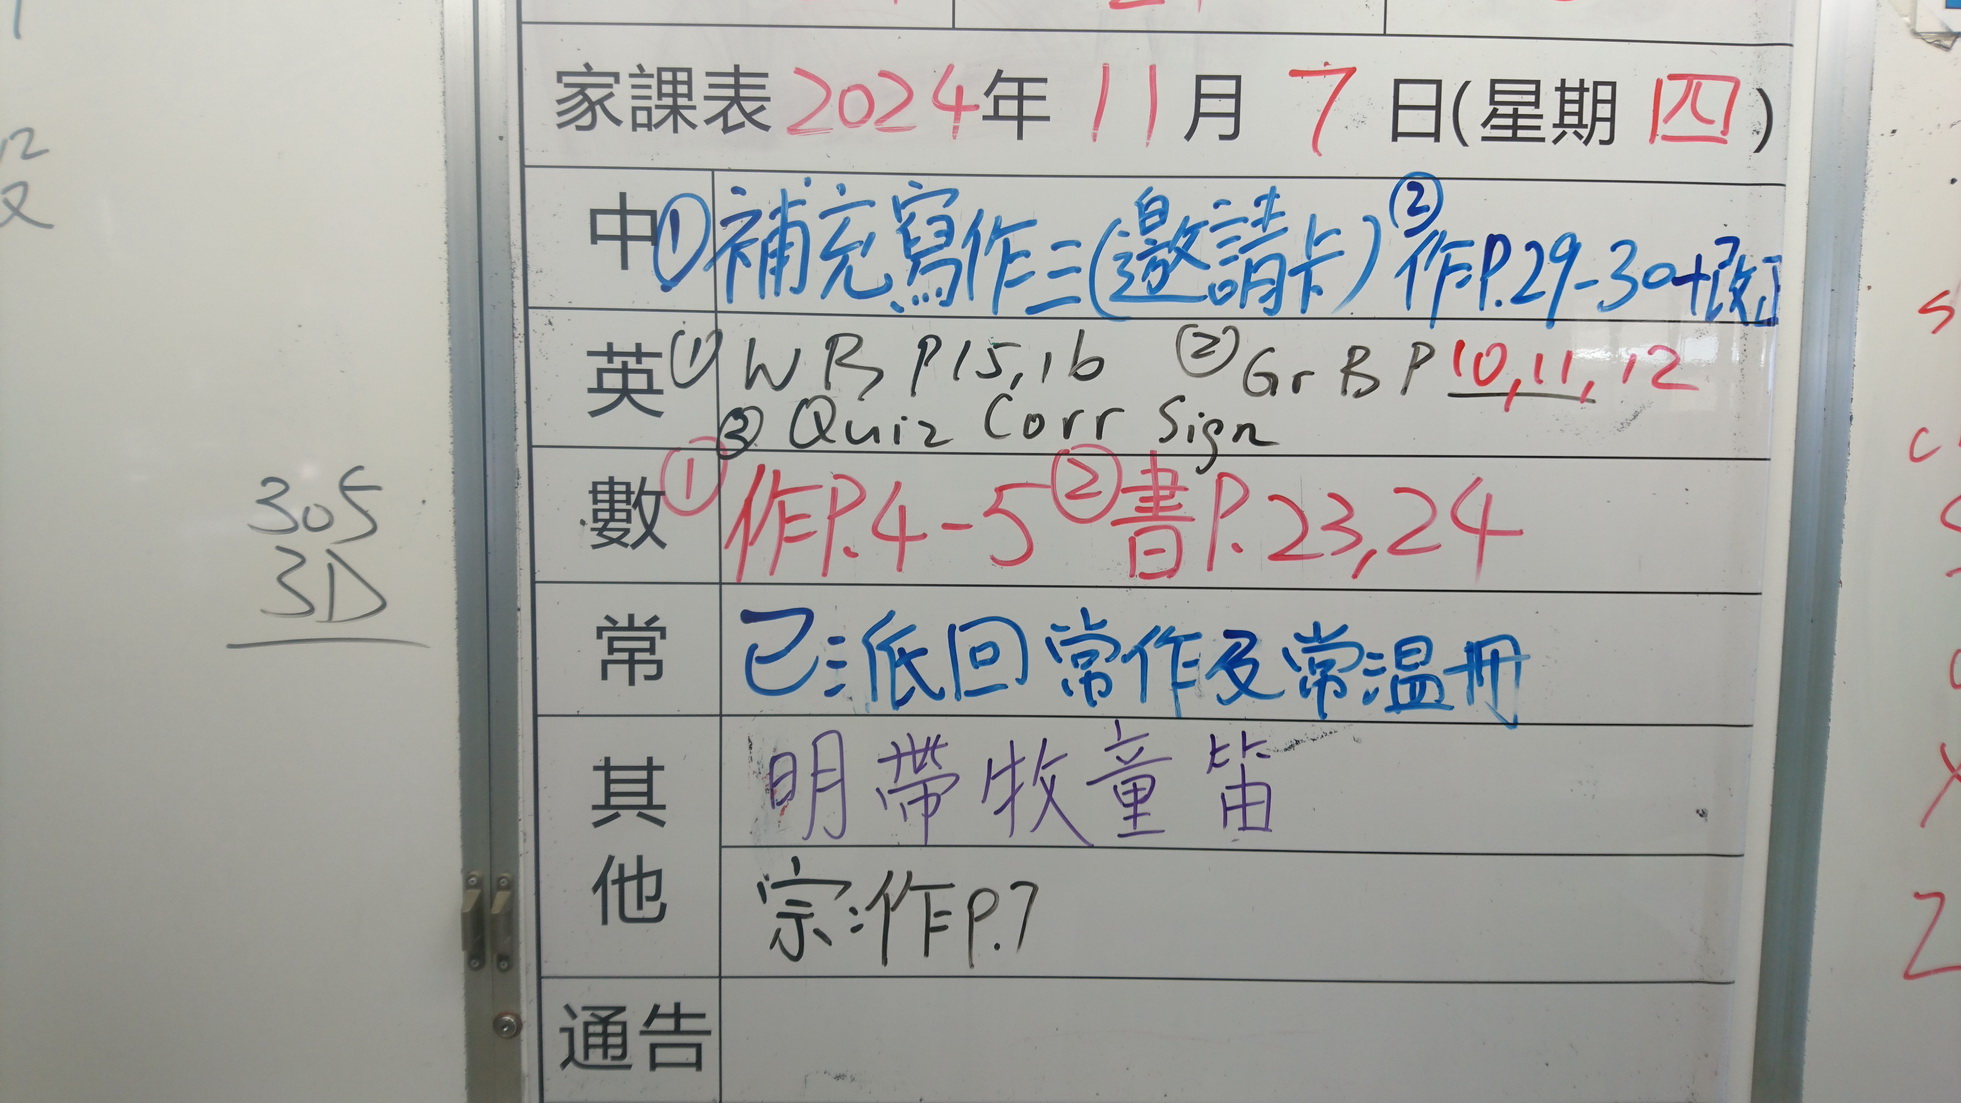 家課表 2024年 11月 7日(星期四)
中 ①補充寫作三(邀請卡) ②作P.29-30+改
英 ①WB P15,16 ②GrB P10,11,12
③Quiz Corr Sign
數 ①作P.4-5 ②書P.23,24
常 已派回常作及常溫冊
其他 明帶牧童笛
宗:作P.7
通告
305
3D